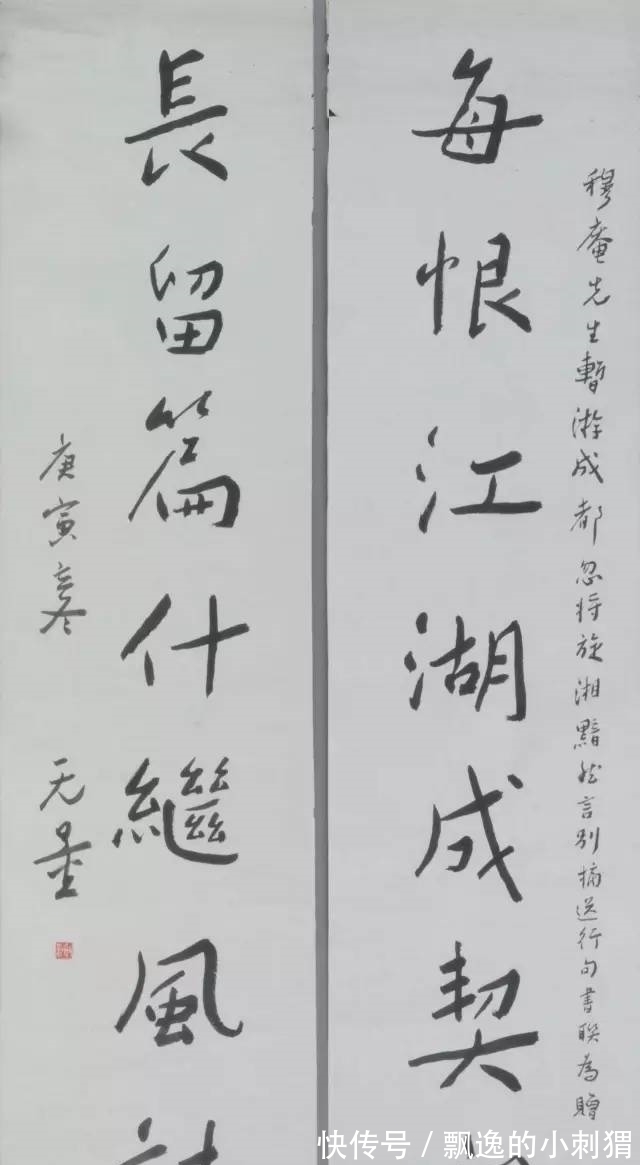 穆庵先生暫游成都忽将旋湘黯然言别摘送行句書联為贈
每恨江湖成契
長留篇什繼風
庚寅 无量
快传号/飘逸的小刺猬